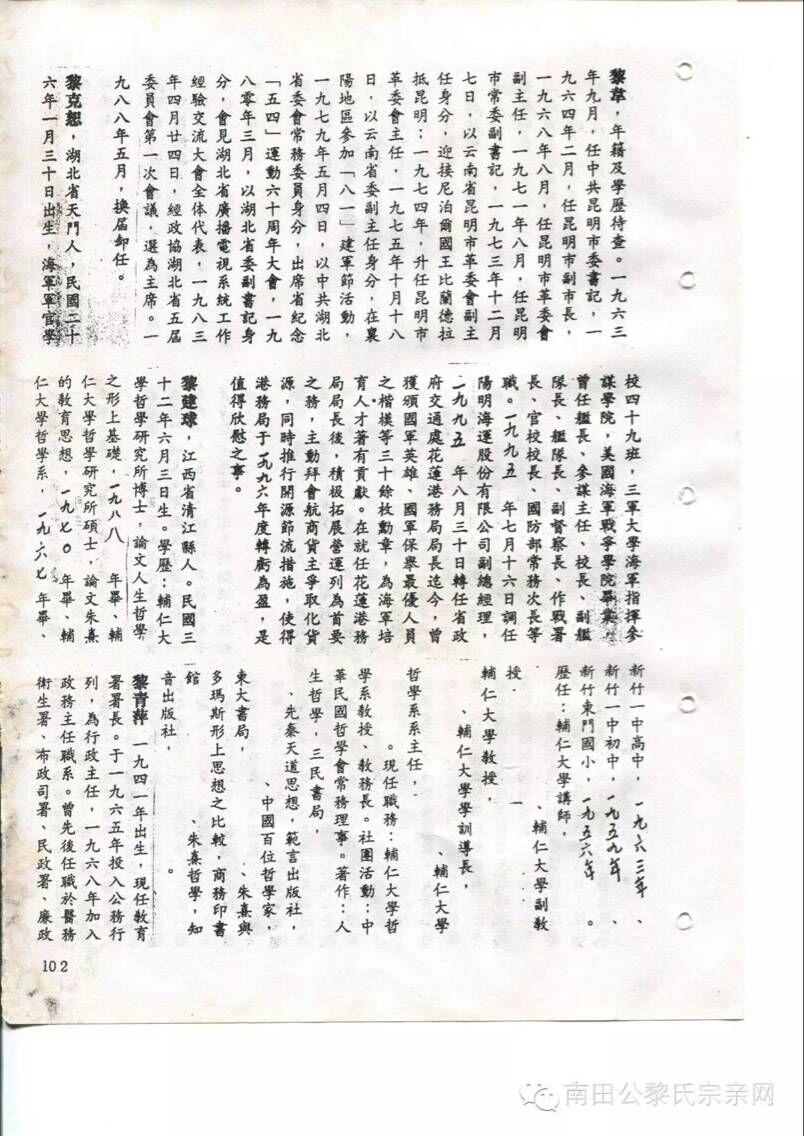 黎韋，年籍及學歷待查。一九六三
年九月，任中共昆明市委書記，一
九六四年二月，任昆明市副市長，
一九六八年八月，任昆明市革委會
副主任，一九七一年八月，任昆明
市常委副書記，一九七三年十二月
七日，以云南省昆明市革委會副主
任身分，迎接尼泊爾國王比蘭德拉
抵昆明；一九七四年，升任昆明市
革委會主任，一九七五年十月十八
日，以云南省委副主任身分，在襄
陽地區參加「八一」建軍節活動，
一九七九年五月四日，以中共湖北
省委會常務委員身分，出席省紀念
「五四」運動六十周年大會，一九
八零年三月，以湖北省委副書記身
分，會見湖北省廣播電視系統工作
經驗交流大會全体代表，一九八三
年四月廿四日，經政協湖北省五屆
委員會第一次會議，選為主席。一
九八八年五月，換屆卸任。
黎克恕，湖北省天門人，民國二十
六年一月三十日出生，海軍軍官學
校四十九班，三軍大學海軍指揮參
謀學院，美國海軍戰爭學院畢業。
曾任艦長、參謀主任、校長、副艦
隊長、艦隊長、副督察長、作戰署
長、官校校長、國防部常務次長等
職。一九九五 年七月十六日調任
陽明海運股份有限公司副總經理，
一九九五 年八月三十日轉任省政
府交通處花蓮港務局局長迄今，曾
獲頒國軍英雄、國軍保舉最優人員
之楷模等三十餘枚勳章，為海軍培
育人才著有貢獻。在就任花蓮港務
局局長後，積极拓展營運列為首要
之務，主動拜會航商貨主爭取化貨
源，同時推行開源節流措施，使得
港務局于一九九六年度轉虧為盈，是
值得欣慰之事。
黎建球，江西省清江縣人。民國三
十二年六月三日生。學歷：輔仁大
學哲學研究所博士，論文人生哲學
之形上基礎，一九八八 年畢、輔
仁大學哲學研究所碩士，論文朱熹
的教育思想，一九七○ 年畢、輔
仁大學哲學系，一九六七 年畢、
新竹一中高中，一九六三年 、
新竹一中初中，一九五九年 、
新竹東門國小，一九五六年 。
歷任：輔仁大學講師，
、輔仁大學副教
授
輔仁大學教授，
、輔仁大學學訓導長，
、輔仁大學
哲學系系主任，
。現任職務：輔仁大學哲
學系教授、教務長。社團活動：中
華民國哲學會常務理事。著作：人
生哲學，三民書局，
、先秦天道思想，範言出版社，
、中國百位哲學家，
東大書局， 、朱熹與
多瑪斯形上思想之比較，商務印書
館 、朱熹哲學，知
音出版社， 。
黎青萍 一九四一年出生，現任教育
署署長。于一九六五年投入公務行
列，為行政主任，一九六八年加入
政務主任職系。曾先後任職於醫務
衛生署、布政司署、民政署、廉政
102
南田公黎氏宗亲网